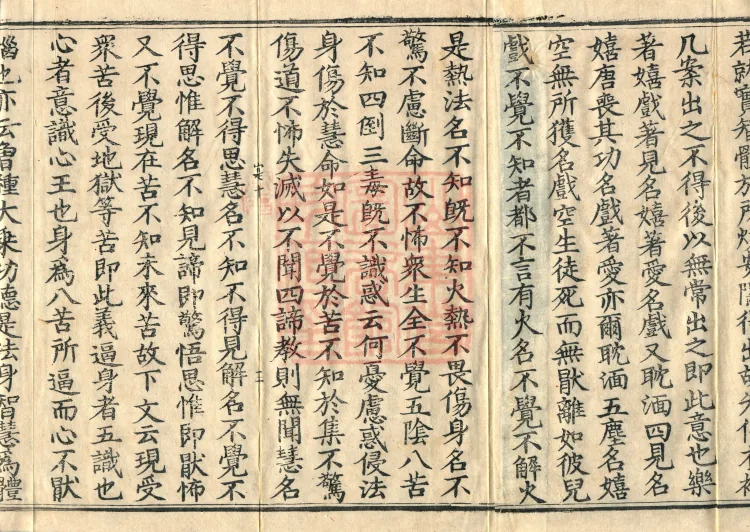 几案出之不得後以無常出之即此意也樂
著嬉戲著見名嬉著愛名戲又耽湎四見名
嬉唐喪其功名戲著愛亦爾耽湎五塵名嬉
空無所獲名戲空生徒死而無猒離如彼兒
戲不覺不知者都不言有火名不覺不解火
是熱法名不知旣不知火熱不畏傷身名不
驚不慮斷命故不怖衆生全不覺五陰八苦
不知四倒三毒旣不識惑云何憂慮惑侵法
身傷於慧命如是不覺於苦不知於集不驚
傷道不怖失滅以不聞四諦教則無聞慧名
不覺不得思慧名不知不得見解名不覺不
得思惟解名不知見諦即驚悟思惟即猒怖
又不覺現在苦不知未來苦故下文云現受
衆苦後受地獄等苦即此義逼身者五識也
心者意識心王也身爲八苦所逼而心不猒
也亦云曾種大乘功德是法身智慧爲體